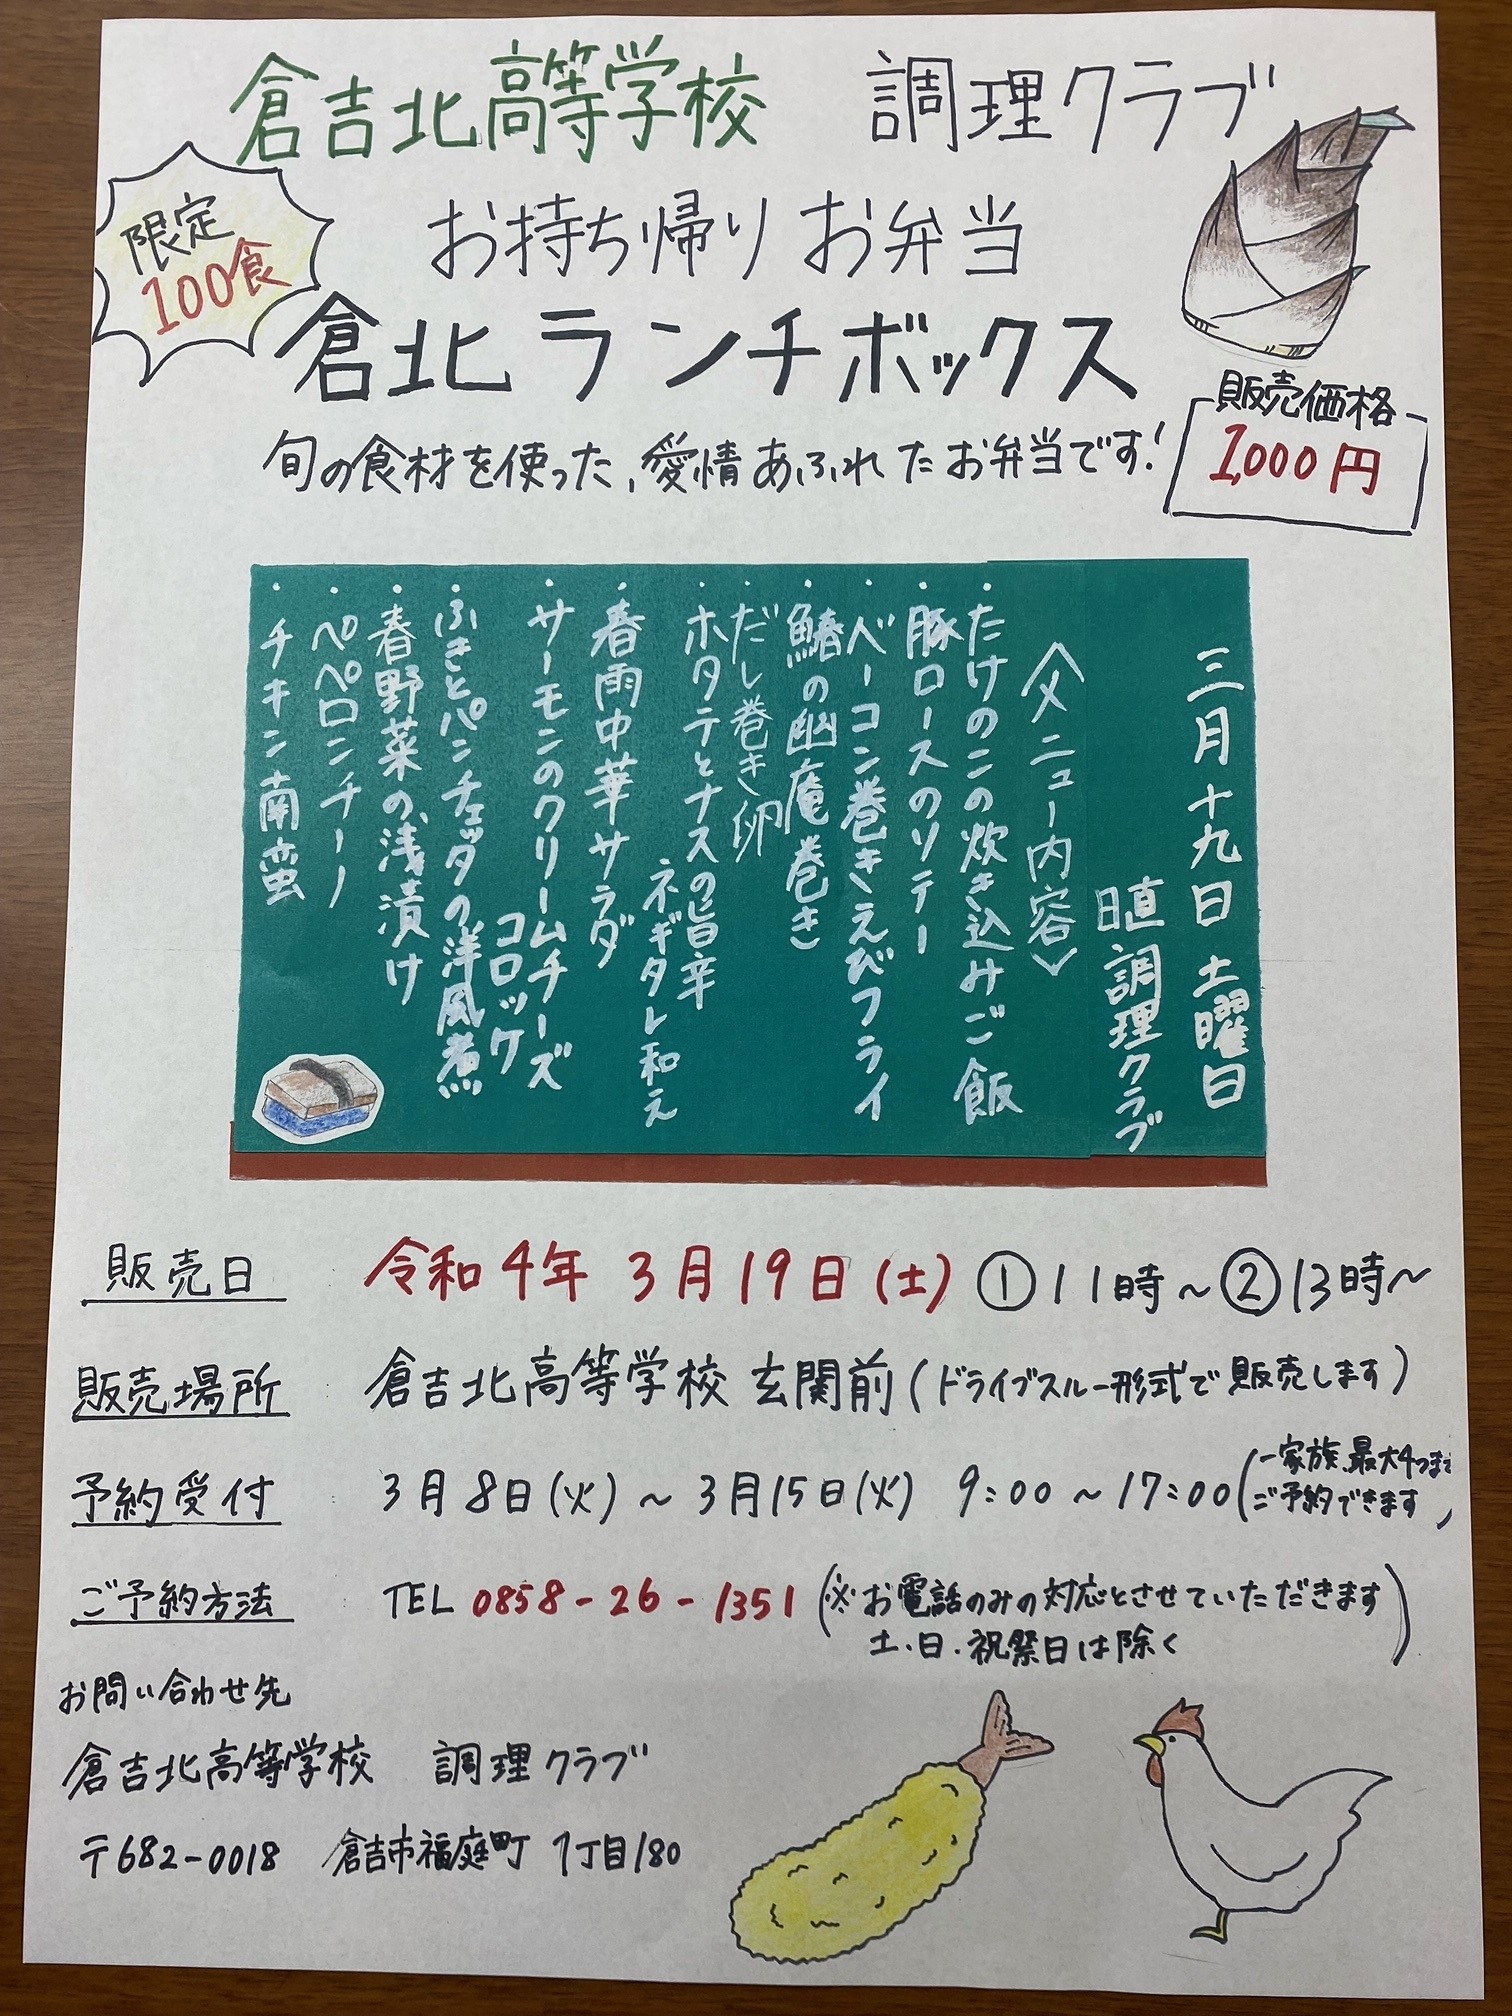 倉吉北高等学校　調理クラブ
限定
100食
お持ち帰りお弁当
倉北ランチボックス
旬の食材を使った、愛情あふれたお弁当です!
販売価格
1,000円
三月十九日 土曜日
日直 調理クラブ
〈メニュー内容〉
・たけのこの炊き込みご飯
・豚ロースのソテー
・ベーコン巻きえびフライ
・鰆の幽庵巻き
・だし巻き卵
・ホタテとナスの旨辛
ネギタレ和え
・春雨中華サラダ
・サーモンのクリームチーズ
コロッケ
・ふきとパンチェッタの洋風煮
・春野菜の浅漬け
・ペペロンチーノ
・チキン南蛮
販売日　令和4年 3月19日(土) ①11時～②13時～
販売場所　倉吉北高等学校 玄関前(ドライブスルー形式で販売します)
予約受付　3月8日(火)～3月15日(火) 9:00～17:00(一家族、最大4つまで
ご予約できます)
ご予約方法　TEL 0858-26-1351(※お電話のみの対応とさせていただきます
土・日・祝祭日は除く)
お問い合わせ先
倉吉北高等学校　調理クラブ
〒682-0018　倉吉市福庭町 1丁目180